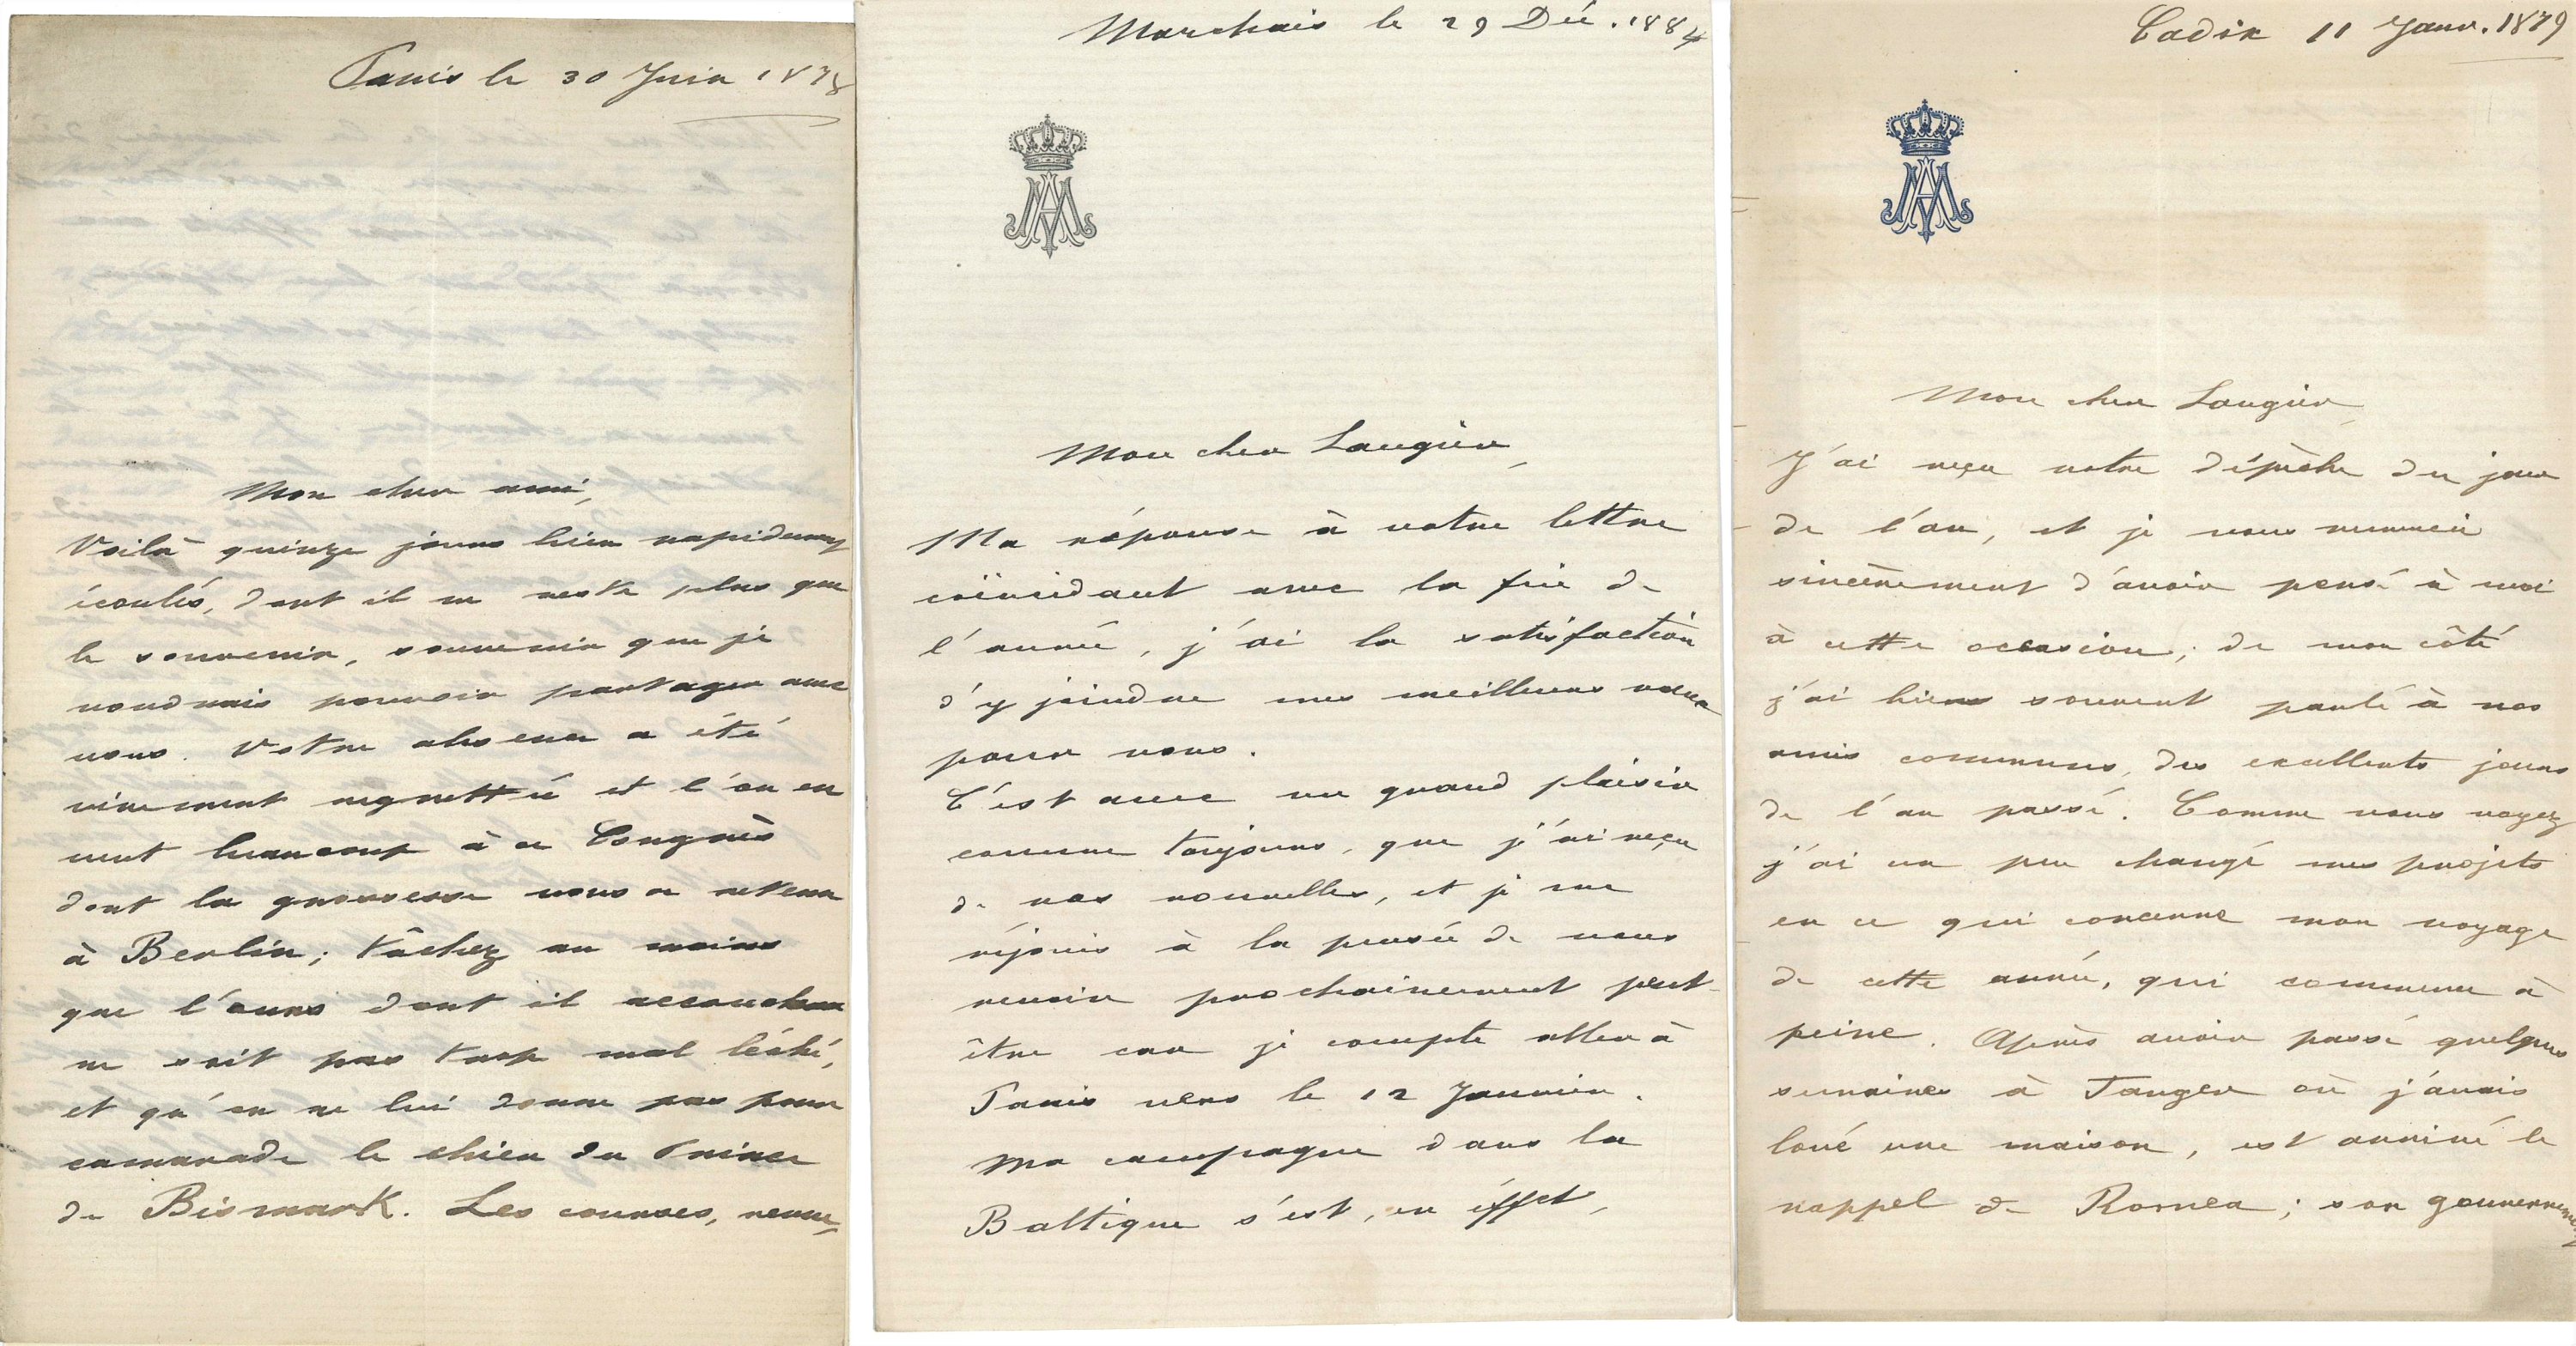 Paris le 30 Juin 1878
Mon cher ami,
Voilà quinze jours bien rapidement
écoulés, dont il ne reste plus que
le souvenir, souvenir que je
voudrais pouvoir partager avec
vous. Votre absence a été
vivement regrettée et l'on en
veut beaucoup à ce Congrès
dont la grossesse vous a retenu
à Berlin; tâchez au moins
que l'ours dont il accouchera
ne soit pas trop mal léché,
et qu'on ne lui donne pas pour
camarade le chien du Prince
de Bismark. Les courses, revue,
Marchais le 29 Déc. 1884
Mon cher Laugier,
Ma réponse à votre lettre
coïncidant avec la fin de
l'année, j'ai la satisfaction
d'y joindre mes meilleurs vœux
pour vous.
C'est avec un grand plaisir
comme toujours, que j'ai reçu
de vos nouvelles, et je me
réjouis à la pensée de vous
revoir prochainement peut-
être car je compte aller à
Paris vers le 12 Janvier.
Ma campagne dans la
Baltique s'est, en éffet,
Cadix 11 Janv. 1879
Mon cher Laugier,
J'ai reçu votre dépèche du jour
de l'an, et je vous remercie
sincèrement d'avoir pensé à moi
à cette occasion; de mon côté
j'ai bien souvent parlé à nos
amis communs, des excellents jours
de l'an passé. Comme vous voyez
j'ai un peu changé mes projets
en ce qui concerne mon voyage
de cette année, qui commence à
peine. Après avoir passé quelques
semaines à Tanger où j'avais
loué une maison, est arrivé le
rappel de Romea; son gouvernement